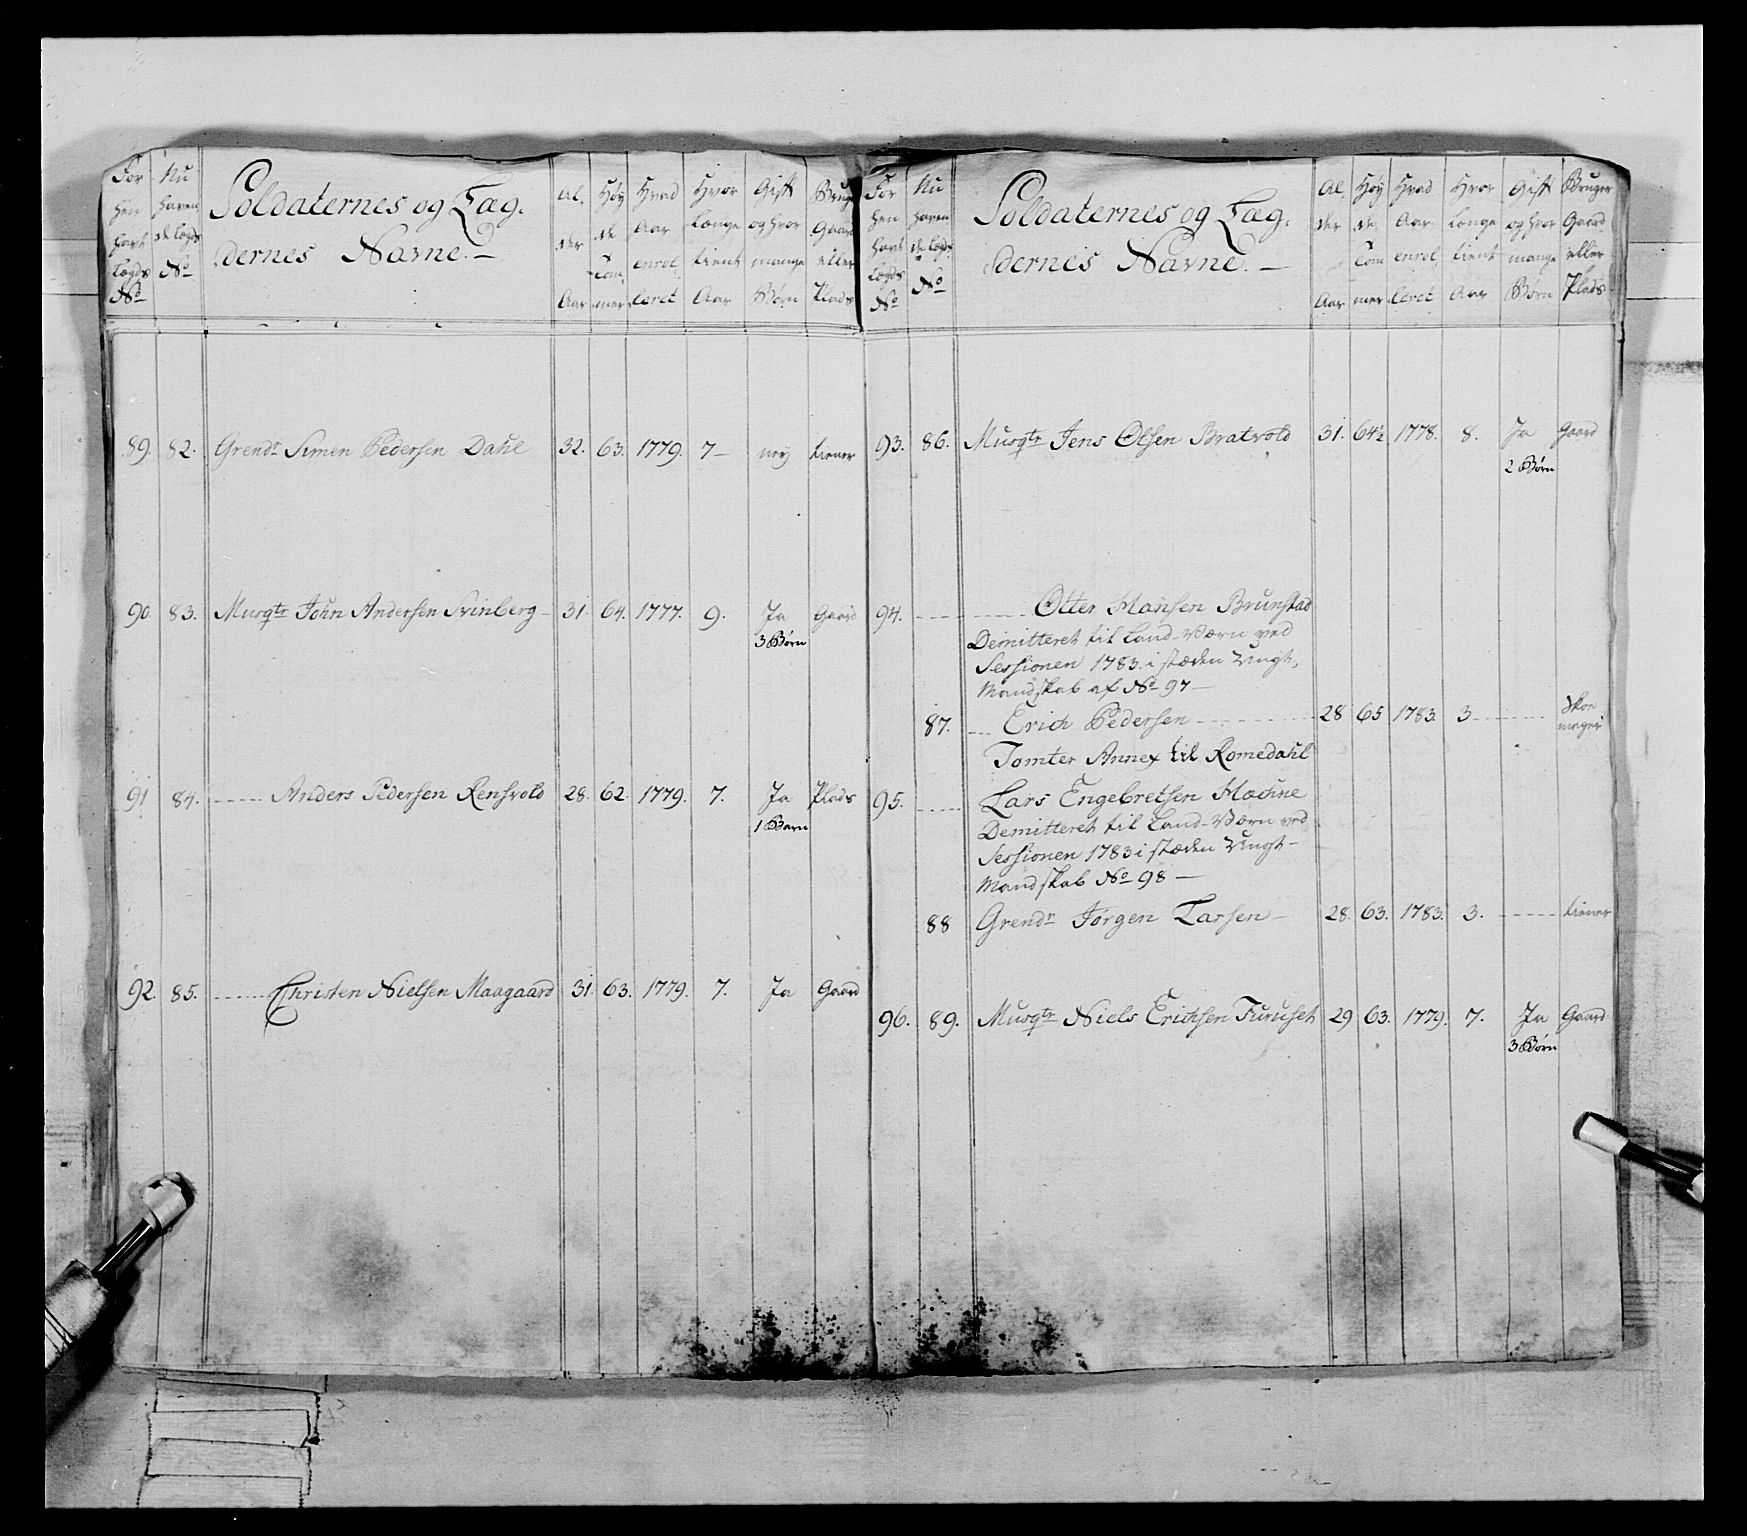 For Nu Soldaternes og Læg- Al, Høy Hvad Hvor Gift Bruger
hen haven dernes Navne.— der de Aar længe og hvor Gaard
havt de Lægds Tom enrol tient mange eller
Lægds No Aar mer leret Aar Børn Plads
No
89. 82. Grendr Simen Pedersen Dahl 32. 63. 1779. 7— ney tiener
90. 83. Musqtr John Andersen Svinberg— 31. 64. 1777. 9. Ja Gaard
3 Børn
91 84. ------ Anders Pedersen Rensvold 28. 62. 1779. 7. Ja Plads
1 Barn
92. 85. ------ Christen Nielsen Maagaard 31. 63. 1779. 7. Ja Gaard
For Nu Soldaternes og Læg- Al, Høy Hvad Hvor Gift Bruger
hen haven dernes Navne.— der de Aar længe og hvor Gaard
havt de Lægds Tom enrol tient mange eller
Lægds No Aar mer leret Aar Børn Plads
No
93. 86. Musqtr Jens Olsen Bratvold 31. 64½ 1778. 8. Ja Gaard
2 Børn
94. ------ Otter Hansen Brunstad
Demitteret til Land-Værn ved
Sessionen 1783. i stæden Ungt-
Mandskab af No 97—
87. --- Erich Pedersen ------ 28 65 1783. 3 ------ Skoe
mager
Tomter Annex til Romedahl
95. ------ Lars Engebretsen Hæhne
Demitteret til Land-Værn ved
Sessionen 1783 i stæden Ungt-
Mandskab No 98—
88 Grendr Jørgen Larsen— 28. 63. 1783. 3. ------ tiener
96. 89. Musqtr Niels Erichsen Furuset 29 63. 1779. 7. Ja Gaard
3 Børn